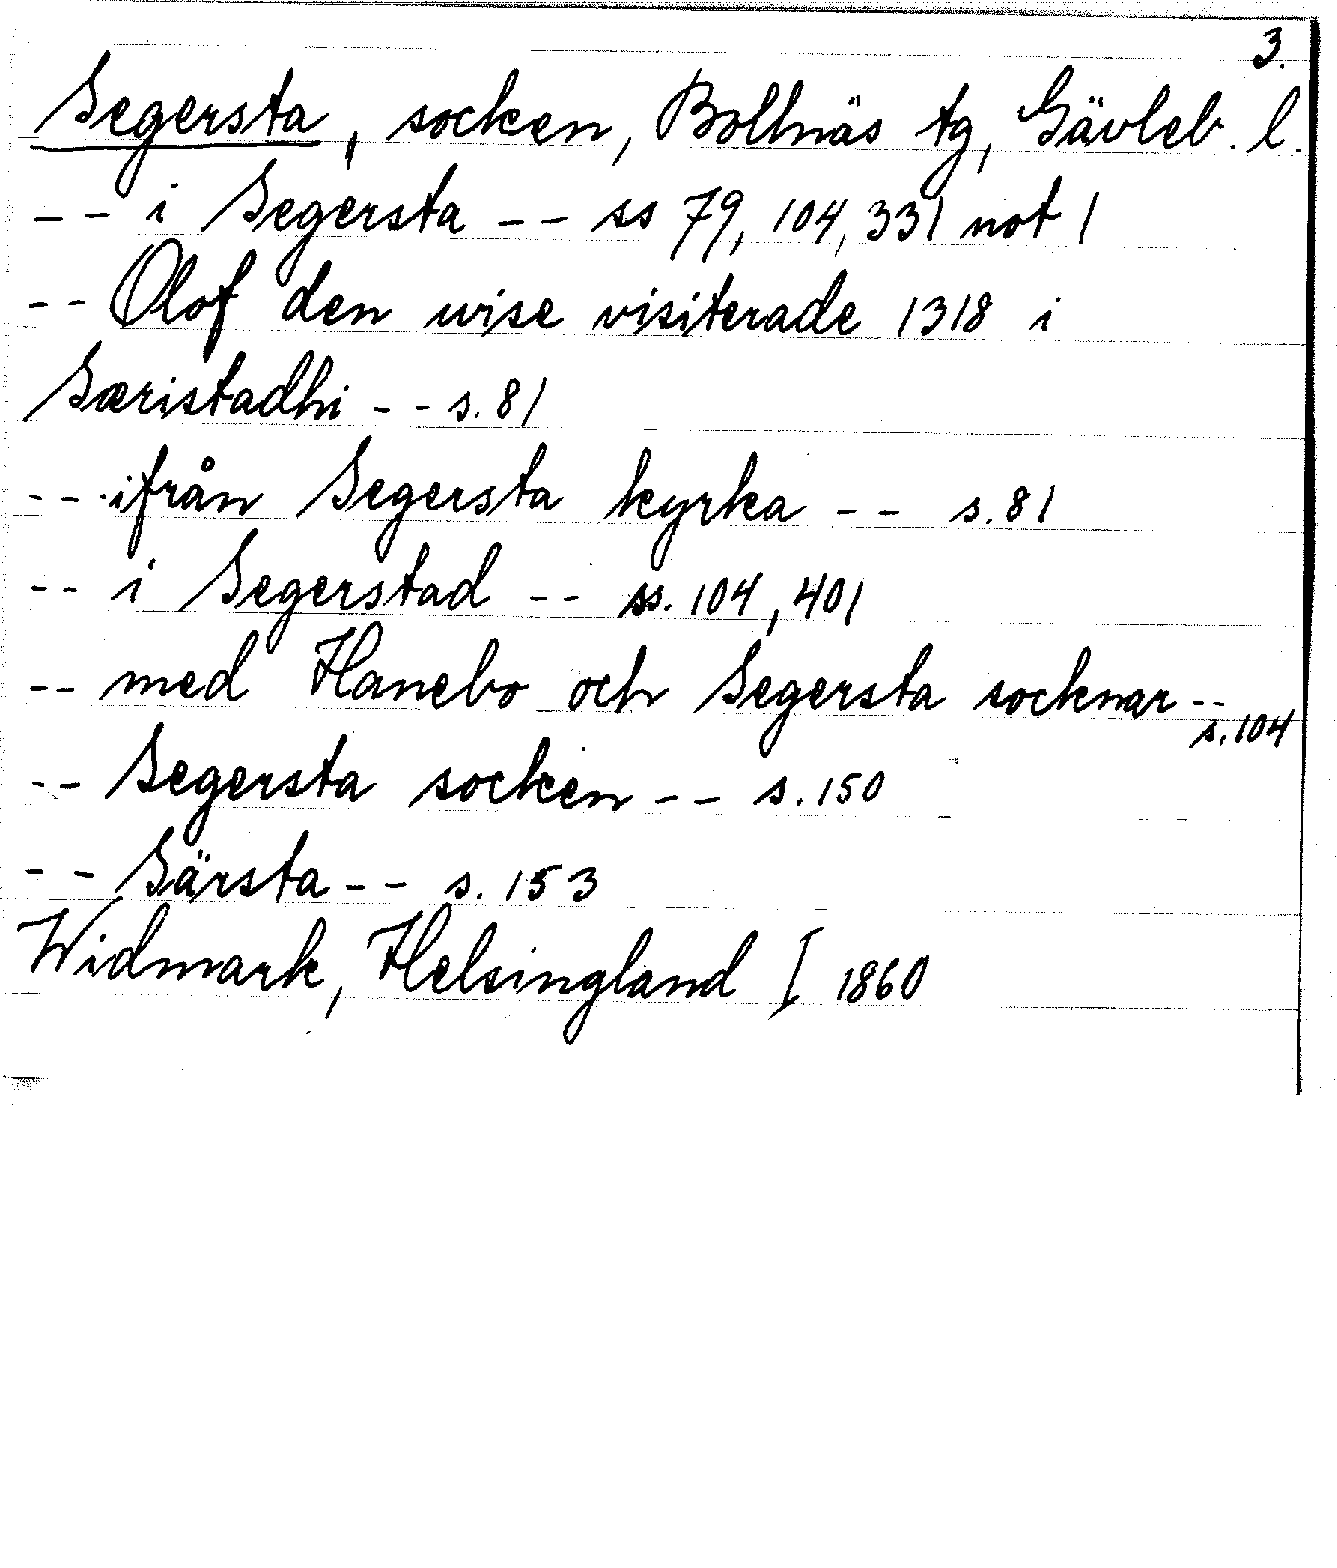 3.
Segersta, socken, Bollnäs tg, Gävleb. l.
-- i Segersta -- ss 79, 104, 331 not 1
-- Olof den wise visiterade 1318 i
Særistadhi -- s. 81
-- ifrån Segersta kyrka -- s. 81
-- i Segerstad -- ss. 104, 401
-- med Hanebo och Segersta socknar --
s. 104
-- Segersta socken -- s. 150
-- Särsta -- s. 153
Widmark, Helsingland [ 1860